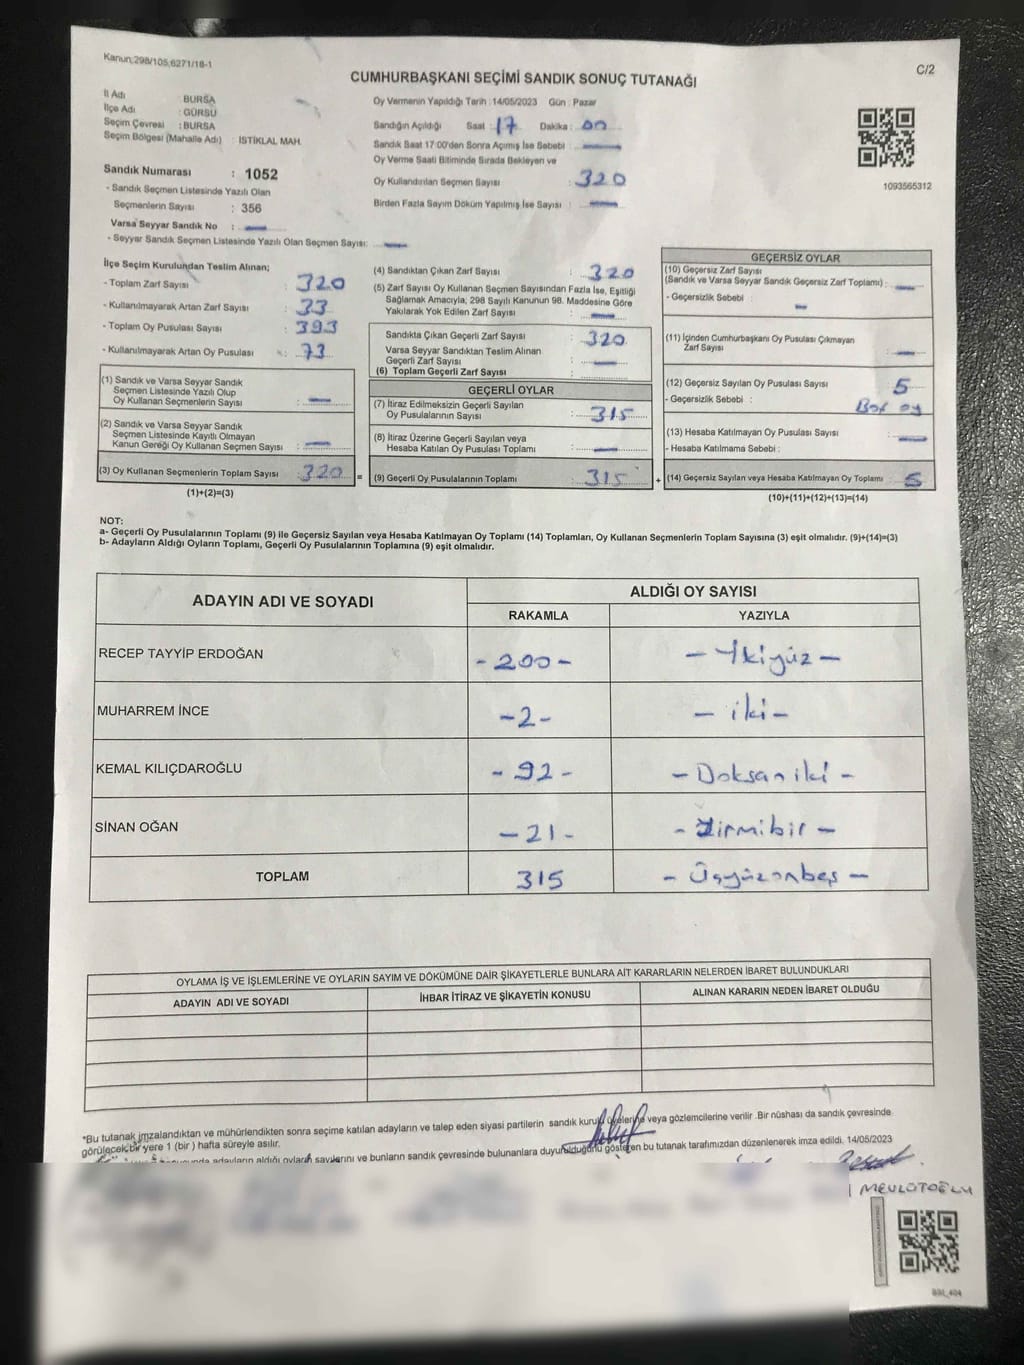 Kanun;298/105,6271/18-1
C/2
CUMHURBAŞKANI SEÇİMİ SANDIK SONUÇ TUTANAĞI
İl Adı BURSA
İlçe Adı : GÜRSU
Seçim Çevresi : BURSA
Seçim Bölgesi (Mahalle Adı) : ISTİKLAL MAH.
Sandık Numarası : 1052
- Sandık Seçmen Listesinde Yazılı Olan
Seçmenlerin Sayısı : 356
Varsa Seyyar Sandık No : —
- Seyyar Sandık Seçmen Listesinde Yazılı Olan Seçmen Sayısı: —
Oy Vermenin Yapıldığı Tarih : 14/05/2023 Gün : Pazar
Sandığın Açıldığı Saat : 17 Dakika : 00
Sandık Saat 17:00'den Sonra Açımış İse Sebebi : —
Oy Verme Saati Bitiminde Sırada Bekleyen ve
Oy Kullandırılan Seçmen Sayısı : 320
Birden Fazla Sayım Döküm Yapılmış İse Sayısı : —
1093565312
İlçe Seçim Kurulundan Teslim Alınan;
- Toplam Zarf Sayısı : 320
- Kullanılmayarak Artan Zarf Sayısı : 33
- Toplam Oy Pusulası Sayısı : 393
- Kullanılmayarak Artan Oy Pusulası : 73
(1) Sandık ve Varsa Seyyar Sandık
Seçmen Listesinde Yazılı Olup
Oy Kullanan Seçmenlerin Sayısı : —
(2) Sandık ve Varsa Seyyar Sandık
Seçmen Listesinde Kayıtlı Olmayan
Kanun Gereği Oy Kullanan Seçmen Sayısı : —
(3) Oy Kullanan Seçmenlerin Toplam Sayısı : 320 =
(1)+(2)=(3)
(4) Sandıktan Çıkan Zarf Sayısı : 320
(5) Zarf Sayısı Oy Kullanan Seçmen Sayısından Fazla İse, Eşitliği
Sağlamak Amacıyla, 298 Sayılı Kanunun 98. Maddesine Göre
Yakılarak Yok Edilen Zarf Sayısı : —
Sandıkta Çıkan Geçerli Zarf Sayısı : 320
Varsa Seyyar Sandıktan Teslim Alınan
Geçerli Zarf Sayısı : —
(6) Toplam Geçerli Zarf Sayısı :
GEÇERLİ OYLAR
(7) İtiraz Edilmeksizin Geçerli Sayılan
Oy Pusulalarının Sayısı : 315
(8) İtiraz Üzerine Geçerli Sayılan veya
Hesaba Katılan Oy Pusulası Toplamı : —
(9) Geçerli Oy Pusulalarının Toplamı : 315 +
GEÇERSİZ OYLAR
(10) Geçersiz Zarf Sayısı
(Sandık ve Varsa Seyyar Sandık Geçersiz Zarf Toplamı) : —
- Geçersizlik Sebebi : —
(11) İçinden Cumhurbaşkanı Oy Pusulası Çıkmayan
Zarf Sayısı : —
(12) Geçersiz Sayılan Oy Pusulası Sayısı : 5
- Geçersizlik Sebebi : Boş oy
(13) Hesaba Katılmayan Oy Pusulası Sayısı : —
- Hesaba Katılmama Sebebi :
(14) Geçersiz Sayılan veya Hesaba Katılmayan Oy Toplamı : 5
(10)+(11)+(12)+(13)=(14)
NOT:
a- Geçerli Oy Pusulalarının Toplamı (9) ile Geçersiz Sayılan veya Hesaba Katılmayan Oy Toplamı (14) Toplamları, Oy Kullanan Seçmenlerin Toplam Sayısına (3) eşit olmalıdır. (9)+(14)=(3)
b- Adayların Aldığı Oyların Toplamı, Geçerli Oy Pusulalarının Toplamına (9) eşit olmalıdır.
ADAYIN ADI VE SOYADI ALDIĞI OY SAYISI
RAKAMLA YAZIYLA
RECEP TAYYİP ERDOĞAN - 200 - - İkiyüz -
MUHARREM İNCE - 2 - - iki -
KEMAL KILIÇDAROĞLU - 92 - - Doksan iki -
SİNAN OĞAN - 21 - - Yirmibir -
TOPLAM 315 - Üçyüzonbeş -
OYLAMA İŞ VE İŞLEMLERİNE VE OYLARIN SAYIM VE DÖKÜMÜNE DAİR ŞİKAYETLERLE BUNLARA AİT KARARLARIN NELERDEN İBARET BULUNDUKLARI
ADAYIN ADI VE SOYADI İHBAR İTİRAZ VE ŞİKAYETİN KONUSU ALINAN KARARIN NEDEN İBARET OLDUĞU
*Bu tutanak imzalandıktan ve mühürlendikten sonra seçime katılan adayların ve talep eden siyasi partilerin sandık kurulu üyelerine veya gözlemcilerine verilir .Bir nüshası da sandık çevresinde
görülecek bir yere 1 (bir ) hafta süreyle asılır.
adayların aldığı oyların sayılarını ve bunların sandık çevresinde bulunanlara duyurulduğunu gösteren bu tutanak tarafımızdan düzenlenerek imza edildi. 14/05/2023
MEVLÜTOĞLU